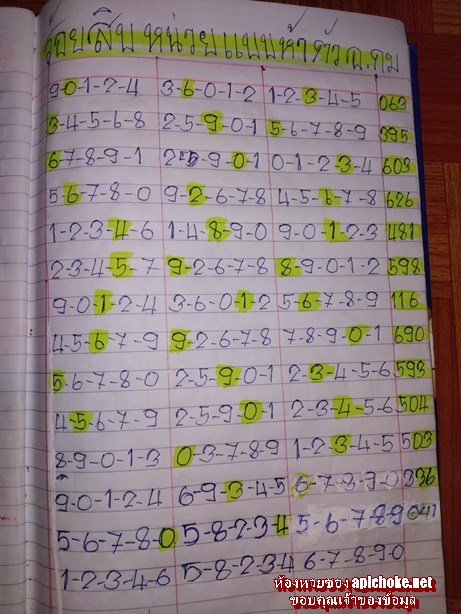 ร้อยสิบ หน่วยแบบห้าตัว อ.คม
9-0-1-2-4 3-6-0-1-2 1-2-3-4-5 063
3-4-5-6-8 2-5-9-0-1 5-6-7-8-9 395
6-7-8-9-1 2-5-9-0-1 0-1-2-3-4 603
5-6-7-8-0 9-2-6-7-8 4-5-6-7-8 626
1-2-3-4-6 1-4-8-9-0 9-0-1-2-3 481
2-3-4-5-7 9-2-6-7-8 8-9-0-1-2 598
9-0-1-2-4 3-6-0-1-2 5-6-7-8-9 116
4-5-6-7-9 9-2-6-7-8 7-8-9-0-1 690
5-6-7-8-0 2-5-9-0-1 2-3-4-5-6 593
4-5-6-7-9 2-5-9-0-1 2-3-4-5-6 504
8-9-0-1-3 0-3-7-8-9 1-2-3-4-5 503
9-0-1-2-4 6-9-3-4-5 6-7-8-9-0 336
5-6-7-8-0 5-8-2-3-4 5-6-7-8-9 041
1-2-3-4-6 5-8-2-3-4 6-7-8-9-0
ห้องหวยของ aplchoke.net
ขอบคุณเจ้าของข้อมูล